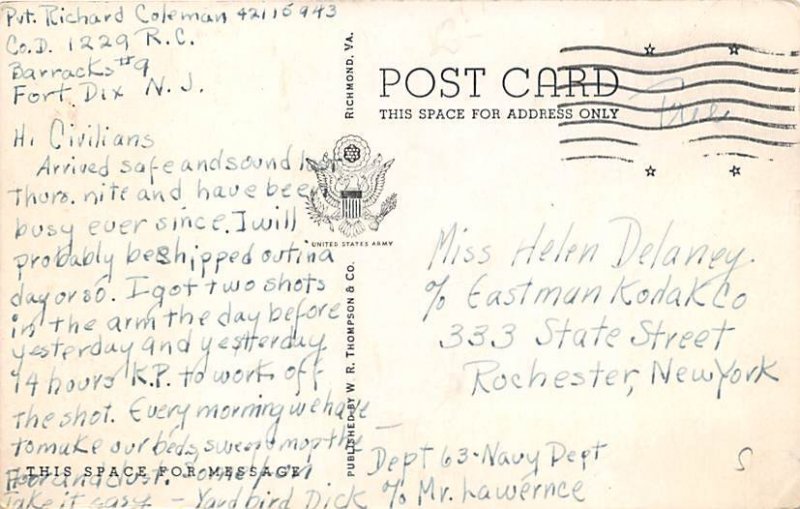 Pvt. Richard Coleman 42115943
Co. D. 1229 R.C.
Barracks #9
Fort Dix N.J.
Hi Civilians
Arrived safe and sound last
Thurs. nite and have been
busy ever since. I will
probably be shipped out in a
day or so. I got two shots
in the arm the day before
yesterday and yesterday
14 hours K.P. to work off
the shot. Every morning we have
to make our beds, sweep, mop the
floor and dust.
Take it easy - Yardbird Dick
THIS SPACE FOR MESSAGE
RICHMOND, VA.
PUBLISHED BY W. R. THOMPSON & CO.
UNITED STATES ARMY
POST CARD
THIS SPACE FOR ADDRESS ONLY
Free
Miss Helen Delaney.
℅ Eastman Kodak Co
333 State Street
Rochester, New York
Dept 63 - Navy Dept
℅ Mr. Lawernce
S